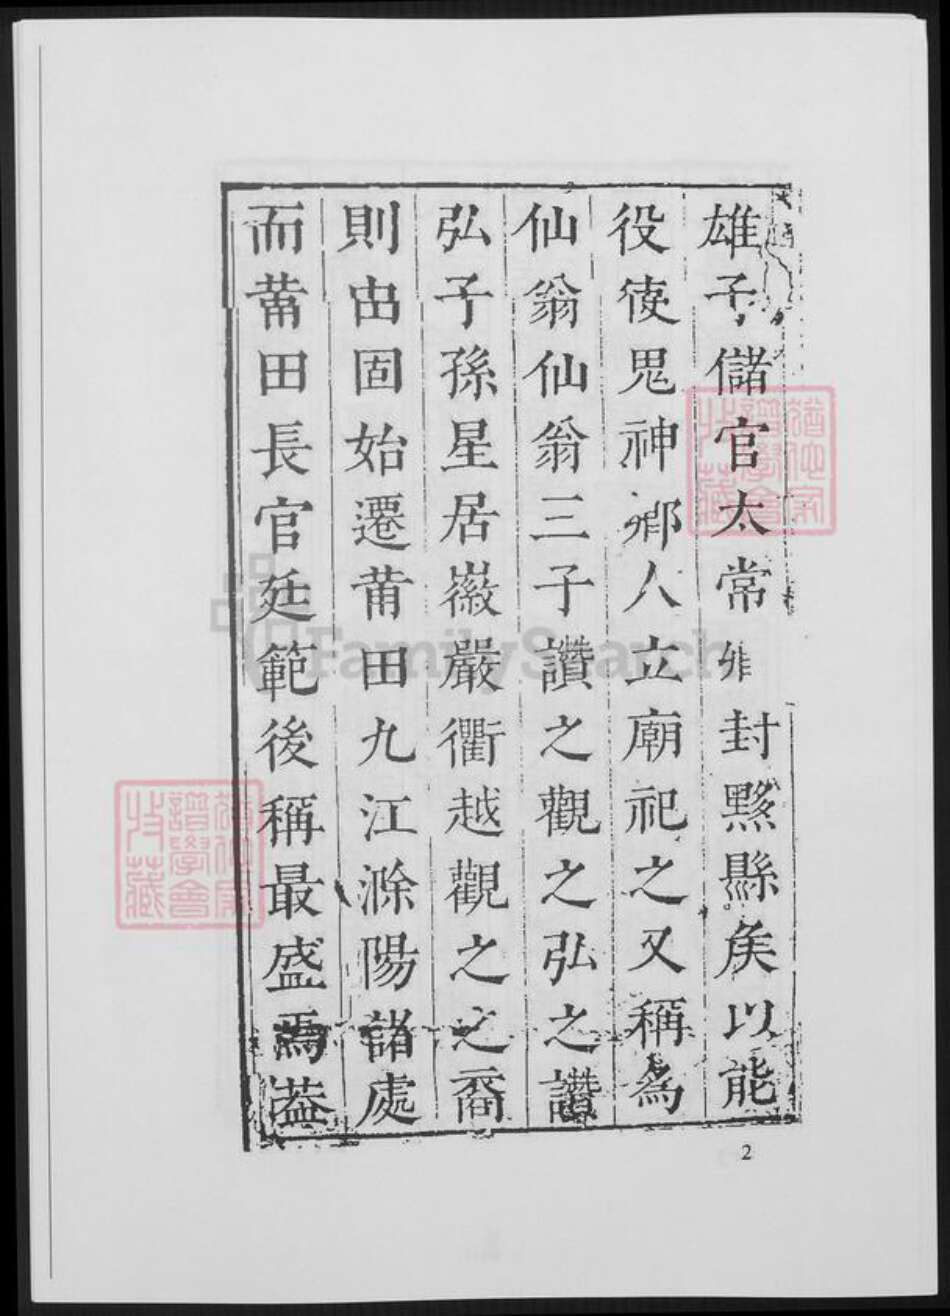 雄子儲官太常卿封黟縣矦以能
役使鬼神鄉人立廟祀之又稱為
仙翁仙翁三子讚之觀之弘之讚
弘子孫星居徽嚴衢越觀之之裔
則由固始遷莆田九江滁陽諸處
而莆田長官廷範後稱最盛焉葢
譜學會
收藏
譜學會
收藏
FamilySearch
2